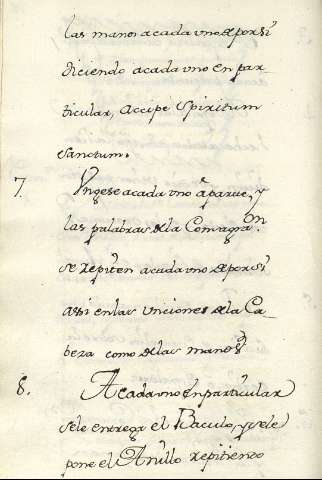 las manos acada vno de por si
diciendo acada vno en par-
ticular, Accipe Spiritum
sanctum.
7. Vngese acada vno aparte, y
las palabras de la Consagraon.
se repiten acada vno de por si
assi en las vnciones de la Ca-
beza como de las manos
8. Acada vno en particular
se le entrega el Baculo, y se le
pone el Anillo repitiendo